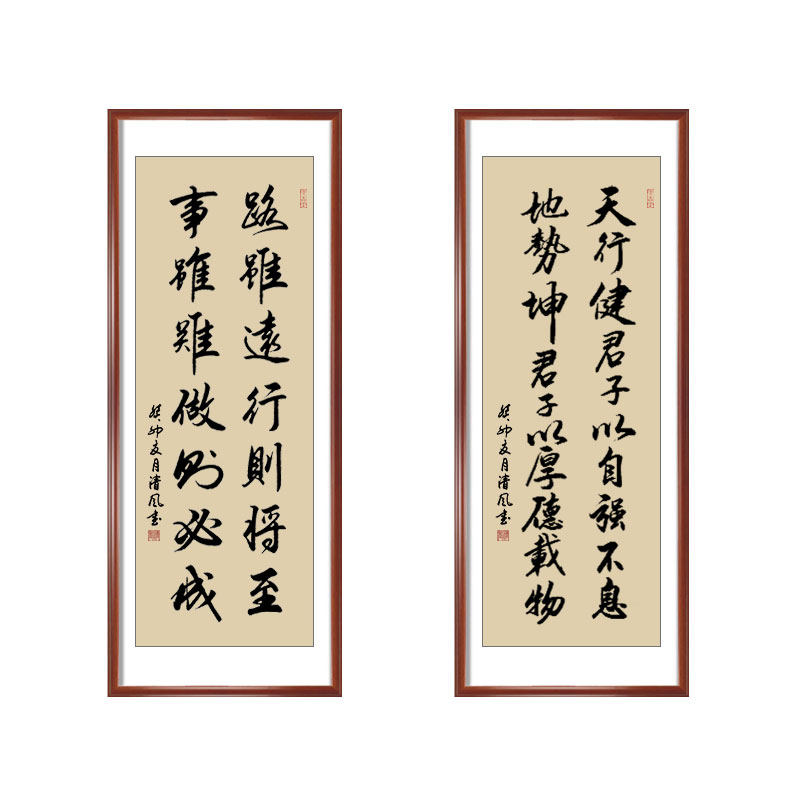 路雖遠行則将至
事雖難做则必成
癸卯夏月清风书
天行健君子以自强不息
地勢坤君子以厚德載物
癸卯夏月清风书